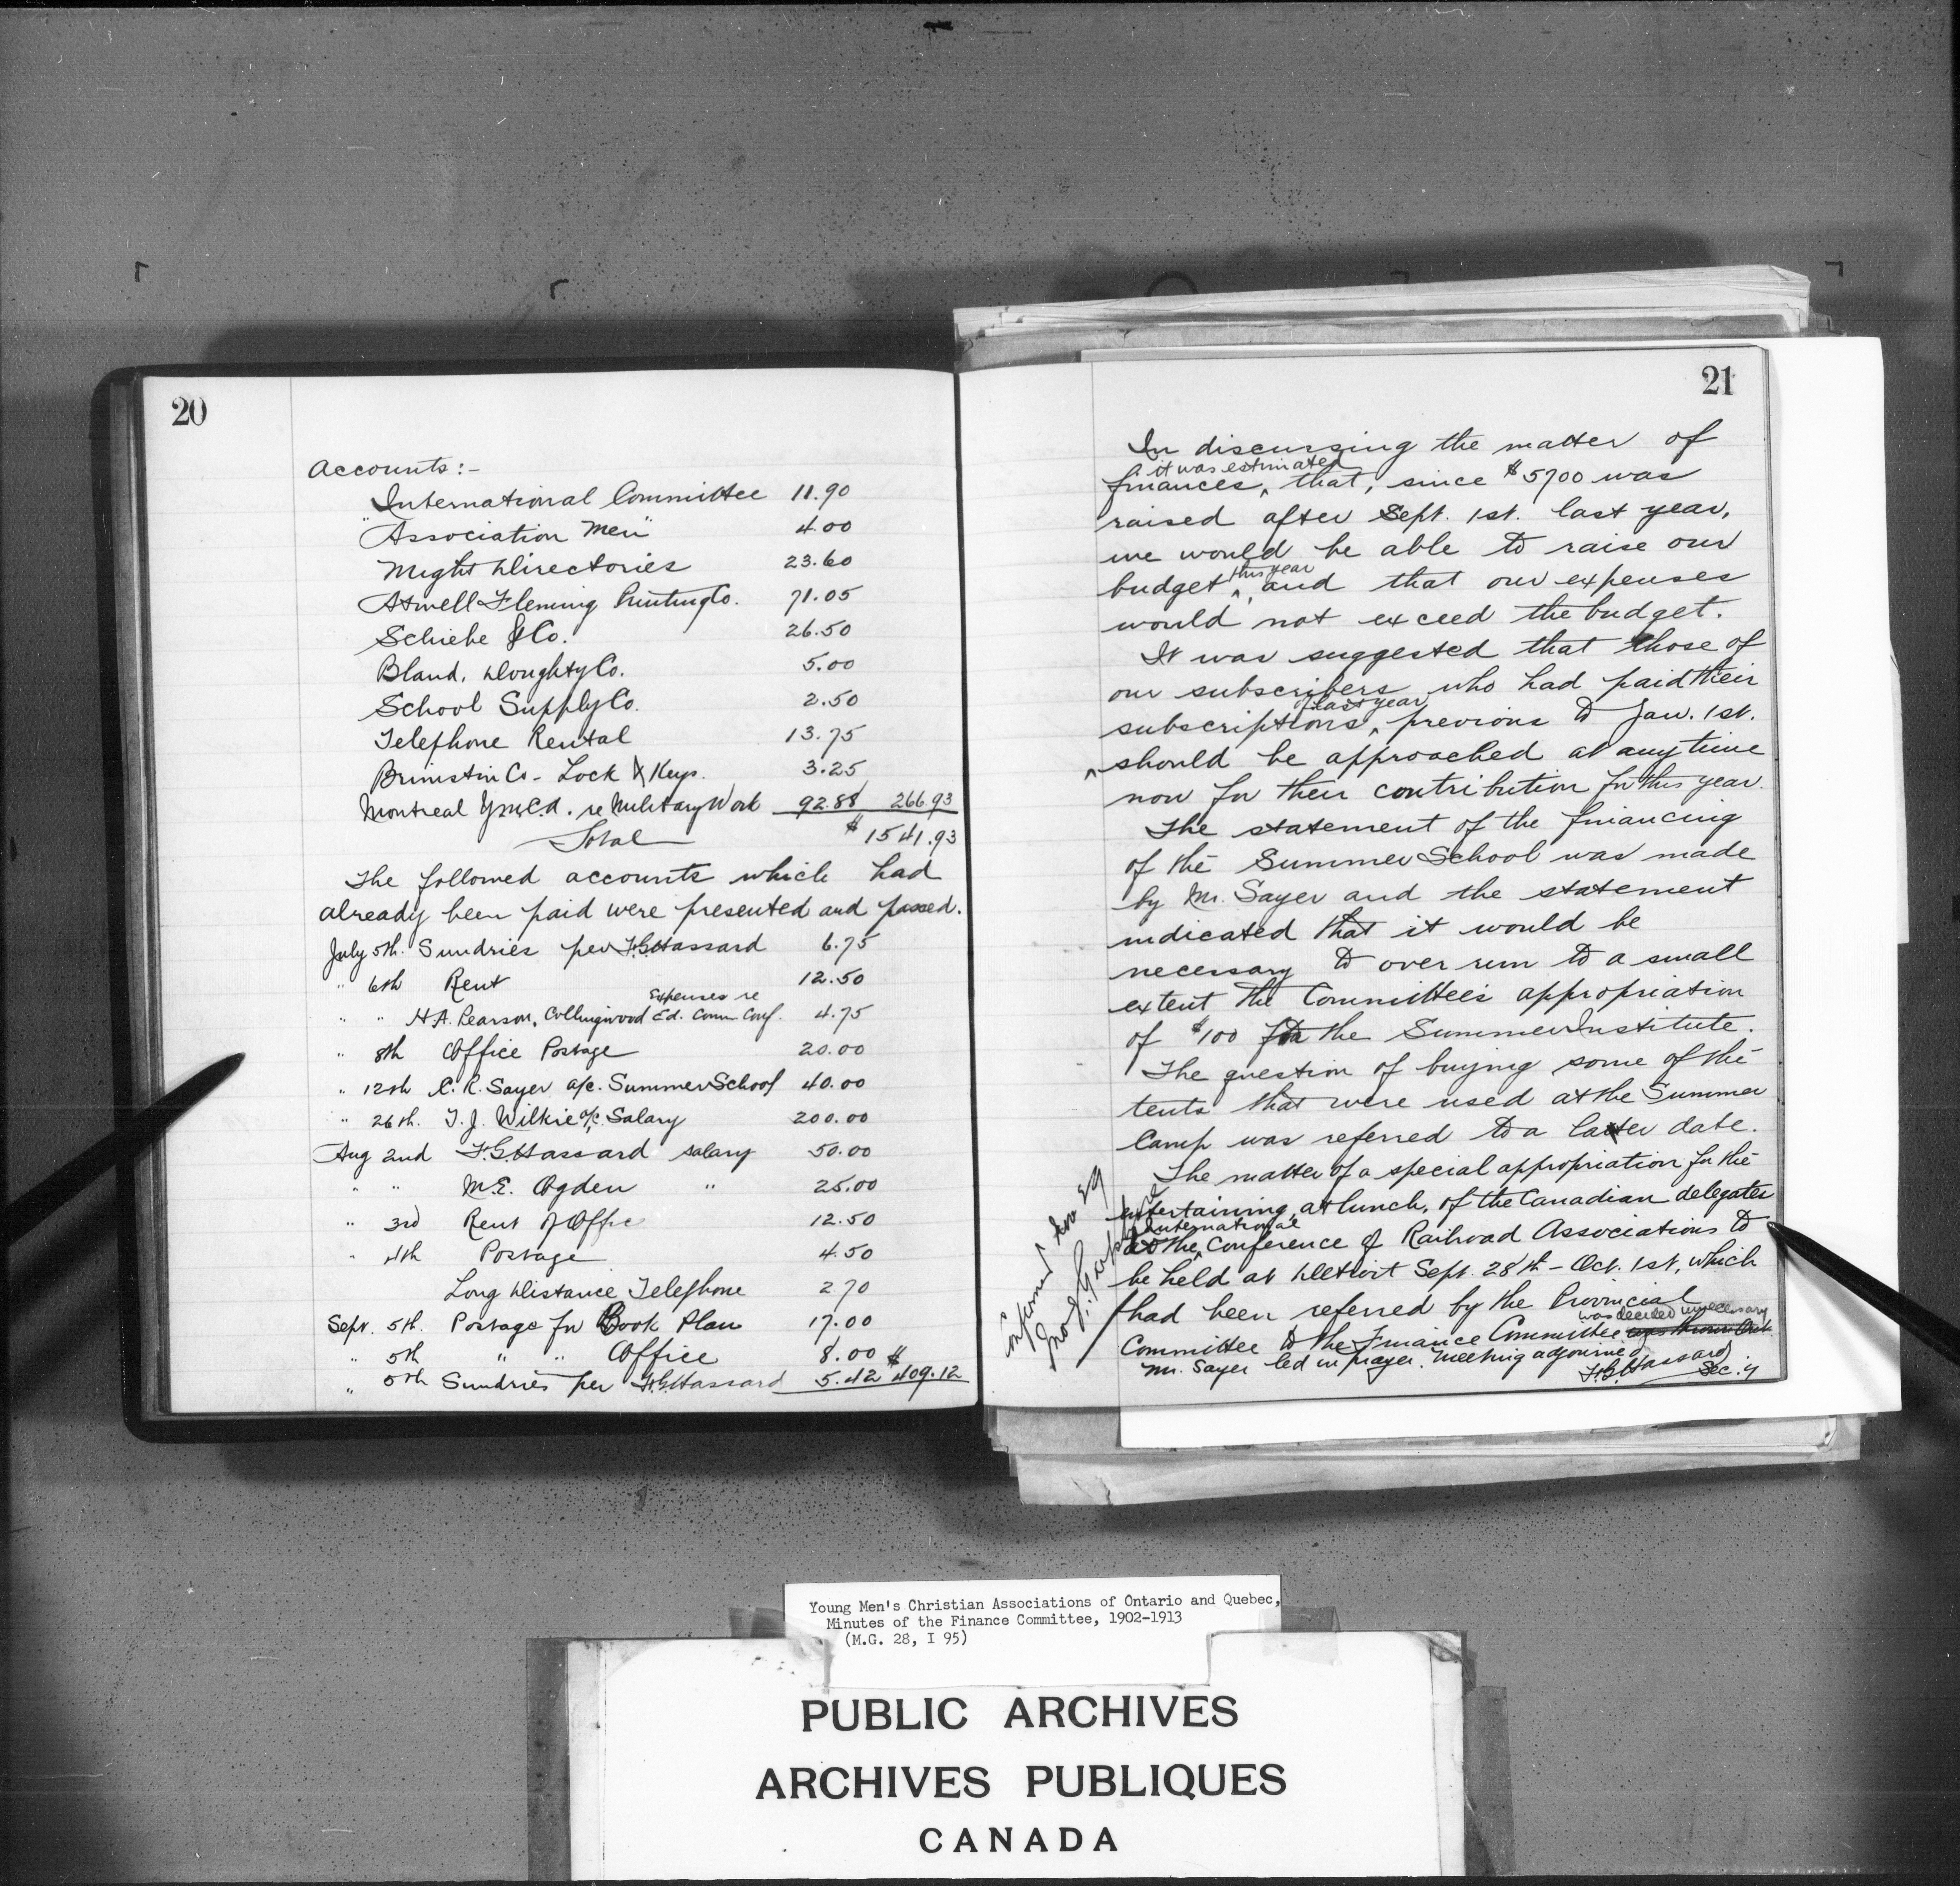 20
Accounts:-
International Committee 11.90
"Association Men" 4.00
Might Directories 23.60
Atwell Fleming Printing Co. 71.05
Schiebe & Co. 26.50
Bland, Doughty Co. 5.00
School Supply Co. 2.50
Telephone Rental 13.75
Co - Lock & Keys. 3.25
Montreal Y.M.C.A. re Military Work 92.88 266.93
Total $1541.93
The followed accounts which had
already been paid were presented and passed.
July 5th. Sundries per F.G. Hassard 6.75
" 6th Rent 12.50
Expenses re
" " H.A. Pearson, Collingwood Ed. Comm Conf. 4.75
" 8th Office Postage 20.00
" 12th C. R. Sayer a/c. Summer School 40.00
" 26th. T. J. Wilkie a/c Salary 200.00
Aug 2nd F.G. Hassard salary 50.00
" " M.E. Ogden " 25.00
" 3rd Rent of Offic 12.50
" 4th Postage 4.50
Long Distance Telephone 2 70
Sept. 5th. Postage for Book Plan 17.00
" 5th " " Office 8.00
" 5th Sundries per F.G. Hassard 5.42 $409.12
21
In discussing the matter of
it was estimated
finances, ^ that, since $5700 was
raised after Sept. 1st. last year,
we would be able to raise our
this year
budget ^, and that our expenses
would not exceed the budget.
It was suggested that those of
our subscribers who had paid their
of last year
subscriptions, ^ previous to Jan. 1st.
^ should be approached at any time
now for their contribution for this year.
The statement of the financing
of the Summer School was made
by Mr. Sayer and the statement
indicated that it would be
necessary to over run to a small
extent the Committee's appropriation
of $100 for the Summer Institute.
The question of buying some of the
tents that were used at the Summer
Camp was referred to a later date.
The matter of a special appropriation for the
entertaining, at lunch, of the Canadian delegates
International
to the ^ Conference of Railroad Associations to
be held at Detroit Sept. 28th - Oct. 1st, which
had been referred by the Provincial
was decided unnecessary
Committee to the Finance Committee was thrown Out
Mr. Sayer led in prayer. Meeting adjourned
F.G. Hassard
Sec.'y
Confirmed
Young Men's Christian Associations of Ontario and Quebec,
Minutes of the Finance Committee, 1902-1913
(M.G. 28, I 95)
PUBLIC ARCHIVES
ARCHIVES PUBLIQUES
CANADA